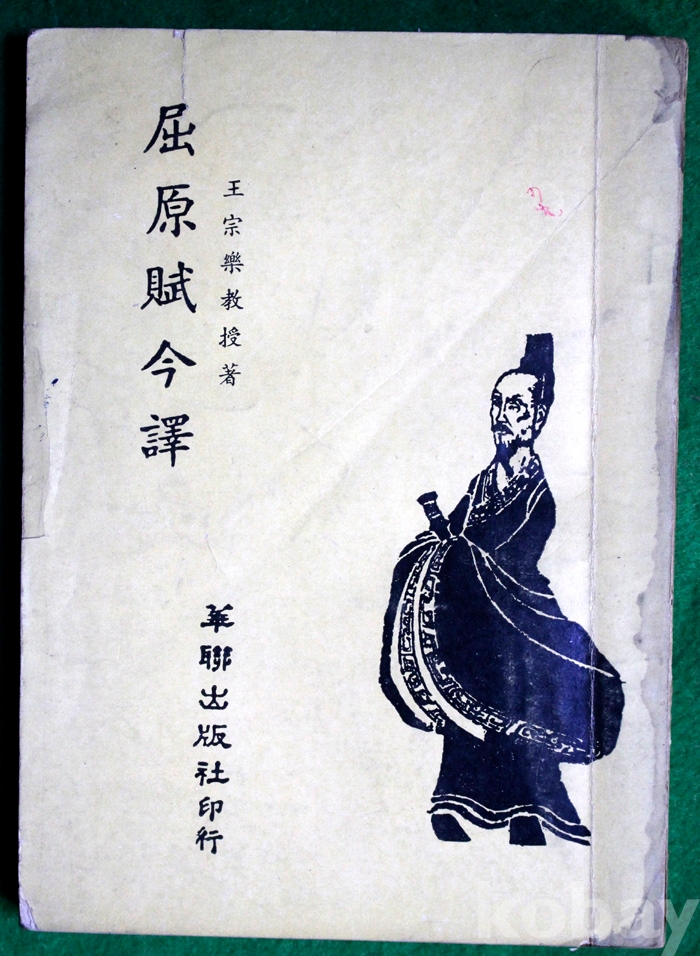 屈原賦今譯
王宗樂教授著
華聯出版社印行
kobay